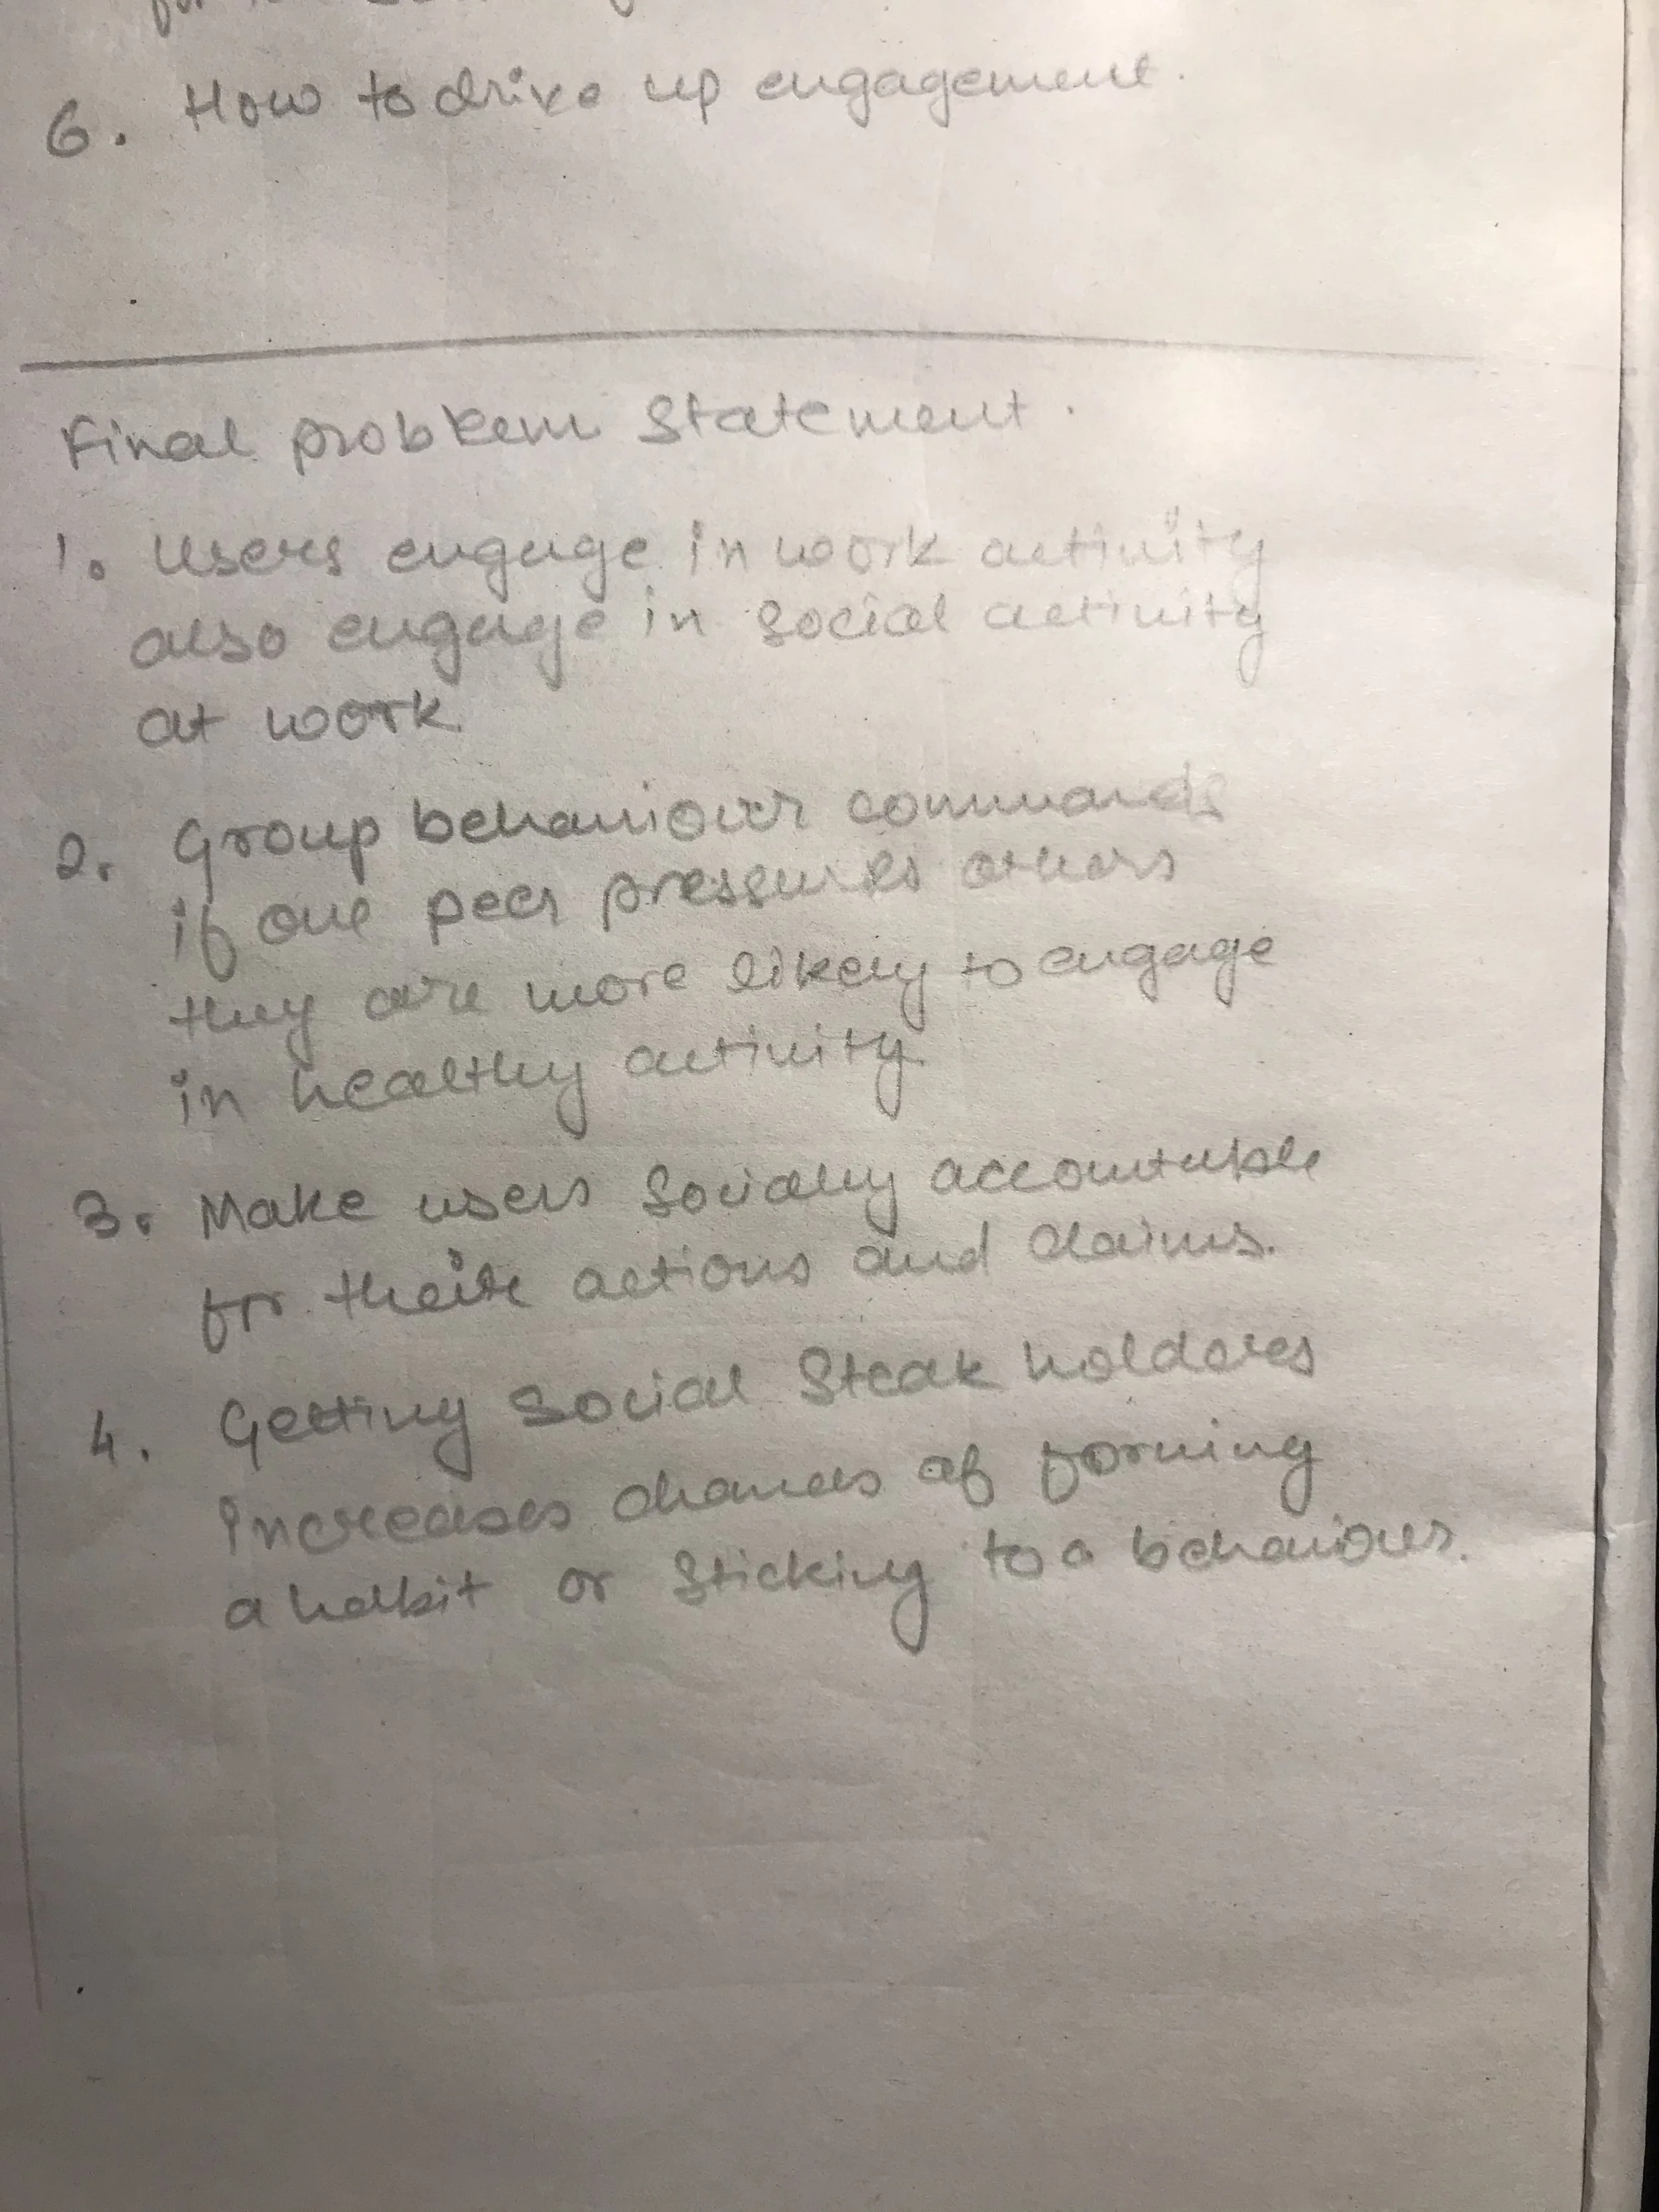 6. How to drive up engagement.
Final problem Statement.
1. Users engage in work activity
also engage in social activity
at work
2. Group behaviour commands
if one peer pressures others
they are more likely to engage
in healthy activity
3. Make users socially accountable
for their actions and claims.
4. Getting social Steak holders
increases chances of forming
a habit or sticking to a behaviour.